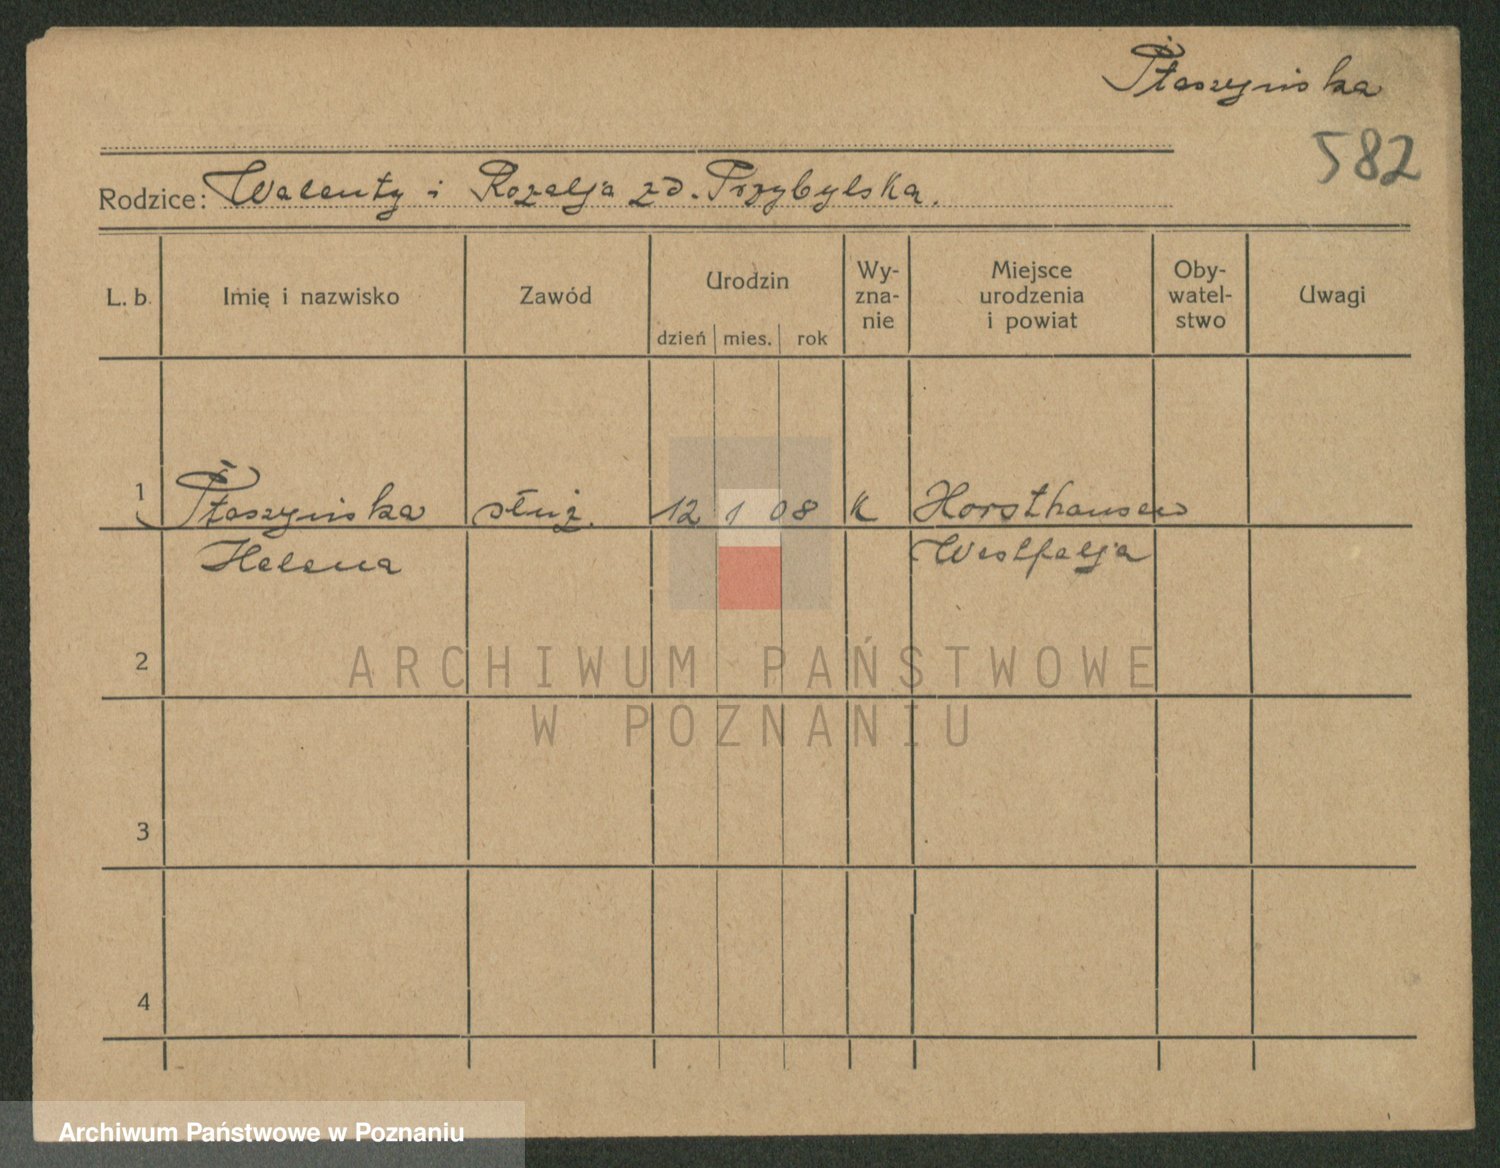 Ptaszyńska
582
Rodzice: Walenty i Rozalja zd. Przybylska.
L. b. Imię i nazwisko Zawód Urodzin dzień mies. rok Wy-zna-nie Miejsce urodzenia i powiat Oby-watel-stwo Uwagi
1 Ptaszyńska służ. 12 1 08 K Horsthausen
Helena Westfalja
2
ARCHIWUM PAŃSTWOWE
W POZNANIU
3
4
Archiwum Państwowe w Poznaniu